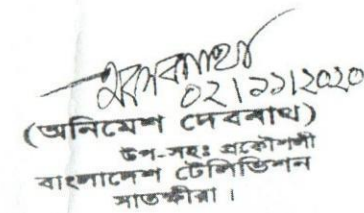 ০২/১১/২০২০
(অনিমেশ দেবনাথ)
উপ-সহঃ প্রকৌশলী
বাংলাদেশ টেলিভিশন
সাতক্ষীরা।